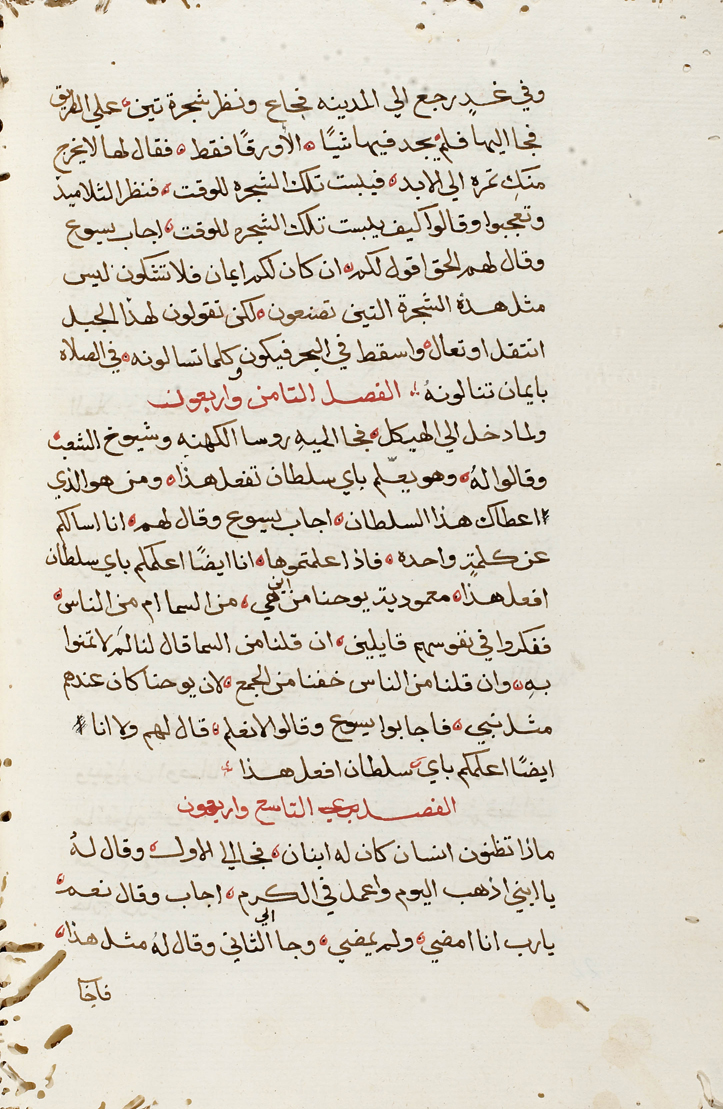 وفي غدٍ رجع الي المدينه فجاع ونظر شجرة تين علي الطريق
فجا اليها فلم يجد فيها شيًا الا ورقًا فقط فقال لها لا يخرج
منكِ ثمره الي الابد فيبست تلك الشجره للوقت فنظر التلاميذ
وتعجبوا وقالوا كيف يبست تلك الشجره للوقت اجاب يسوع
وقال لهم الحق اقول لكم ان كان لكم ايمان فلا تشكون ليس
مثل هذه الشجرة التين تصنعون لكن تقولون لهذا الجبل
انتقل او تعال واسقط في البحر فيكون وكلما تسالونه في الصلاه
بايمان تنالونهُ الفصل الثامن واربعون
ولما دخل الي الهيكل فجا اليه روسا الكهنه وشيوخ الشعب
وقالوا لهُ وهو يعلم باي سلطان تفعل هذا ومن هو الذي
اعطاك هذا السلطان اجاب يسوع وقال لهم انا اسالكم
عن كلمةٍ واحدة فاذا اعلمتموها انا ايضًا اعلمكم باي سلطان
افعل هذا معمودية يوحنا من اين هي من السما ام من الناس
ففكروا في نفوسهم قايلين ان قلنا من السما قال لنا لمَ لا تمنوا
بهِ وان قلنا من الناس خفنا من الجمع لان يوحنا كان عندهم
مثل نبي فاجابوا يسوع وقالوا لا نعلم قال لهم ولا انا
ايضًا اعلمكم باي سلطان افعل هذا
الفصل التاسع واربعون
ماذا تظنون انسان كان له ابنان فجا الي الاول وقال لهُ
يا ابني اذهب اليوم واعمل في الكرم اجاب وقال نعم
يارب انا امضي ولم يمضي وجا الي الثاني وقال لهُ مثل هذا
فاجا